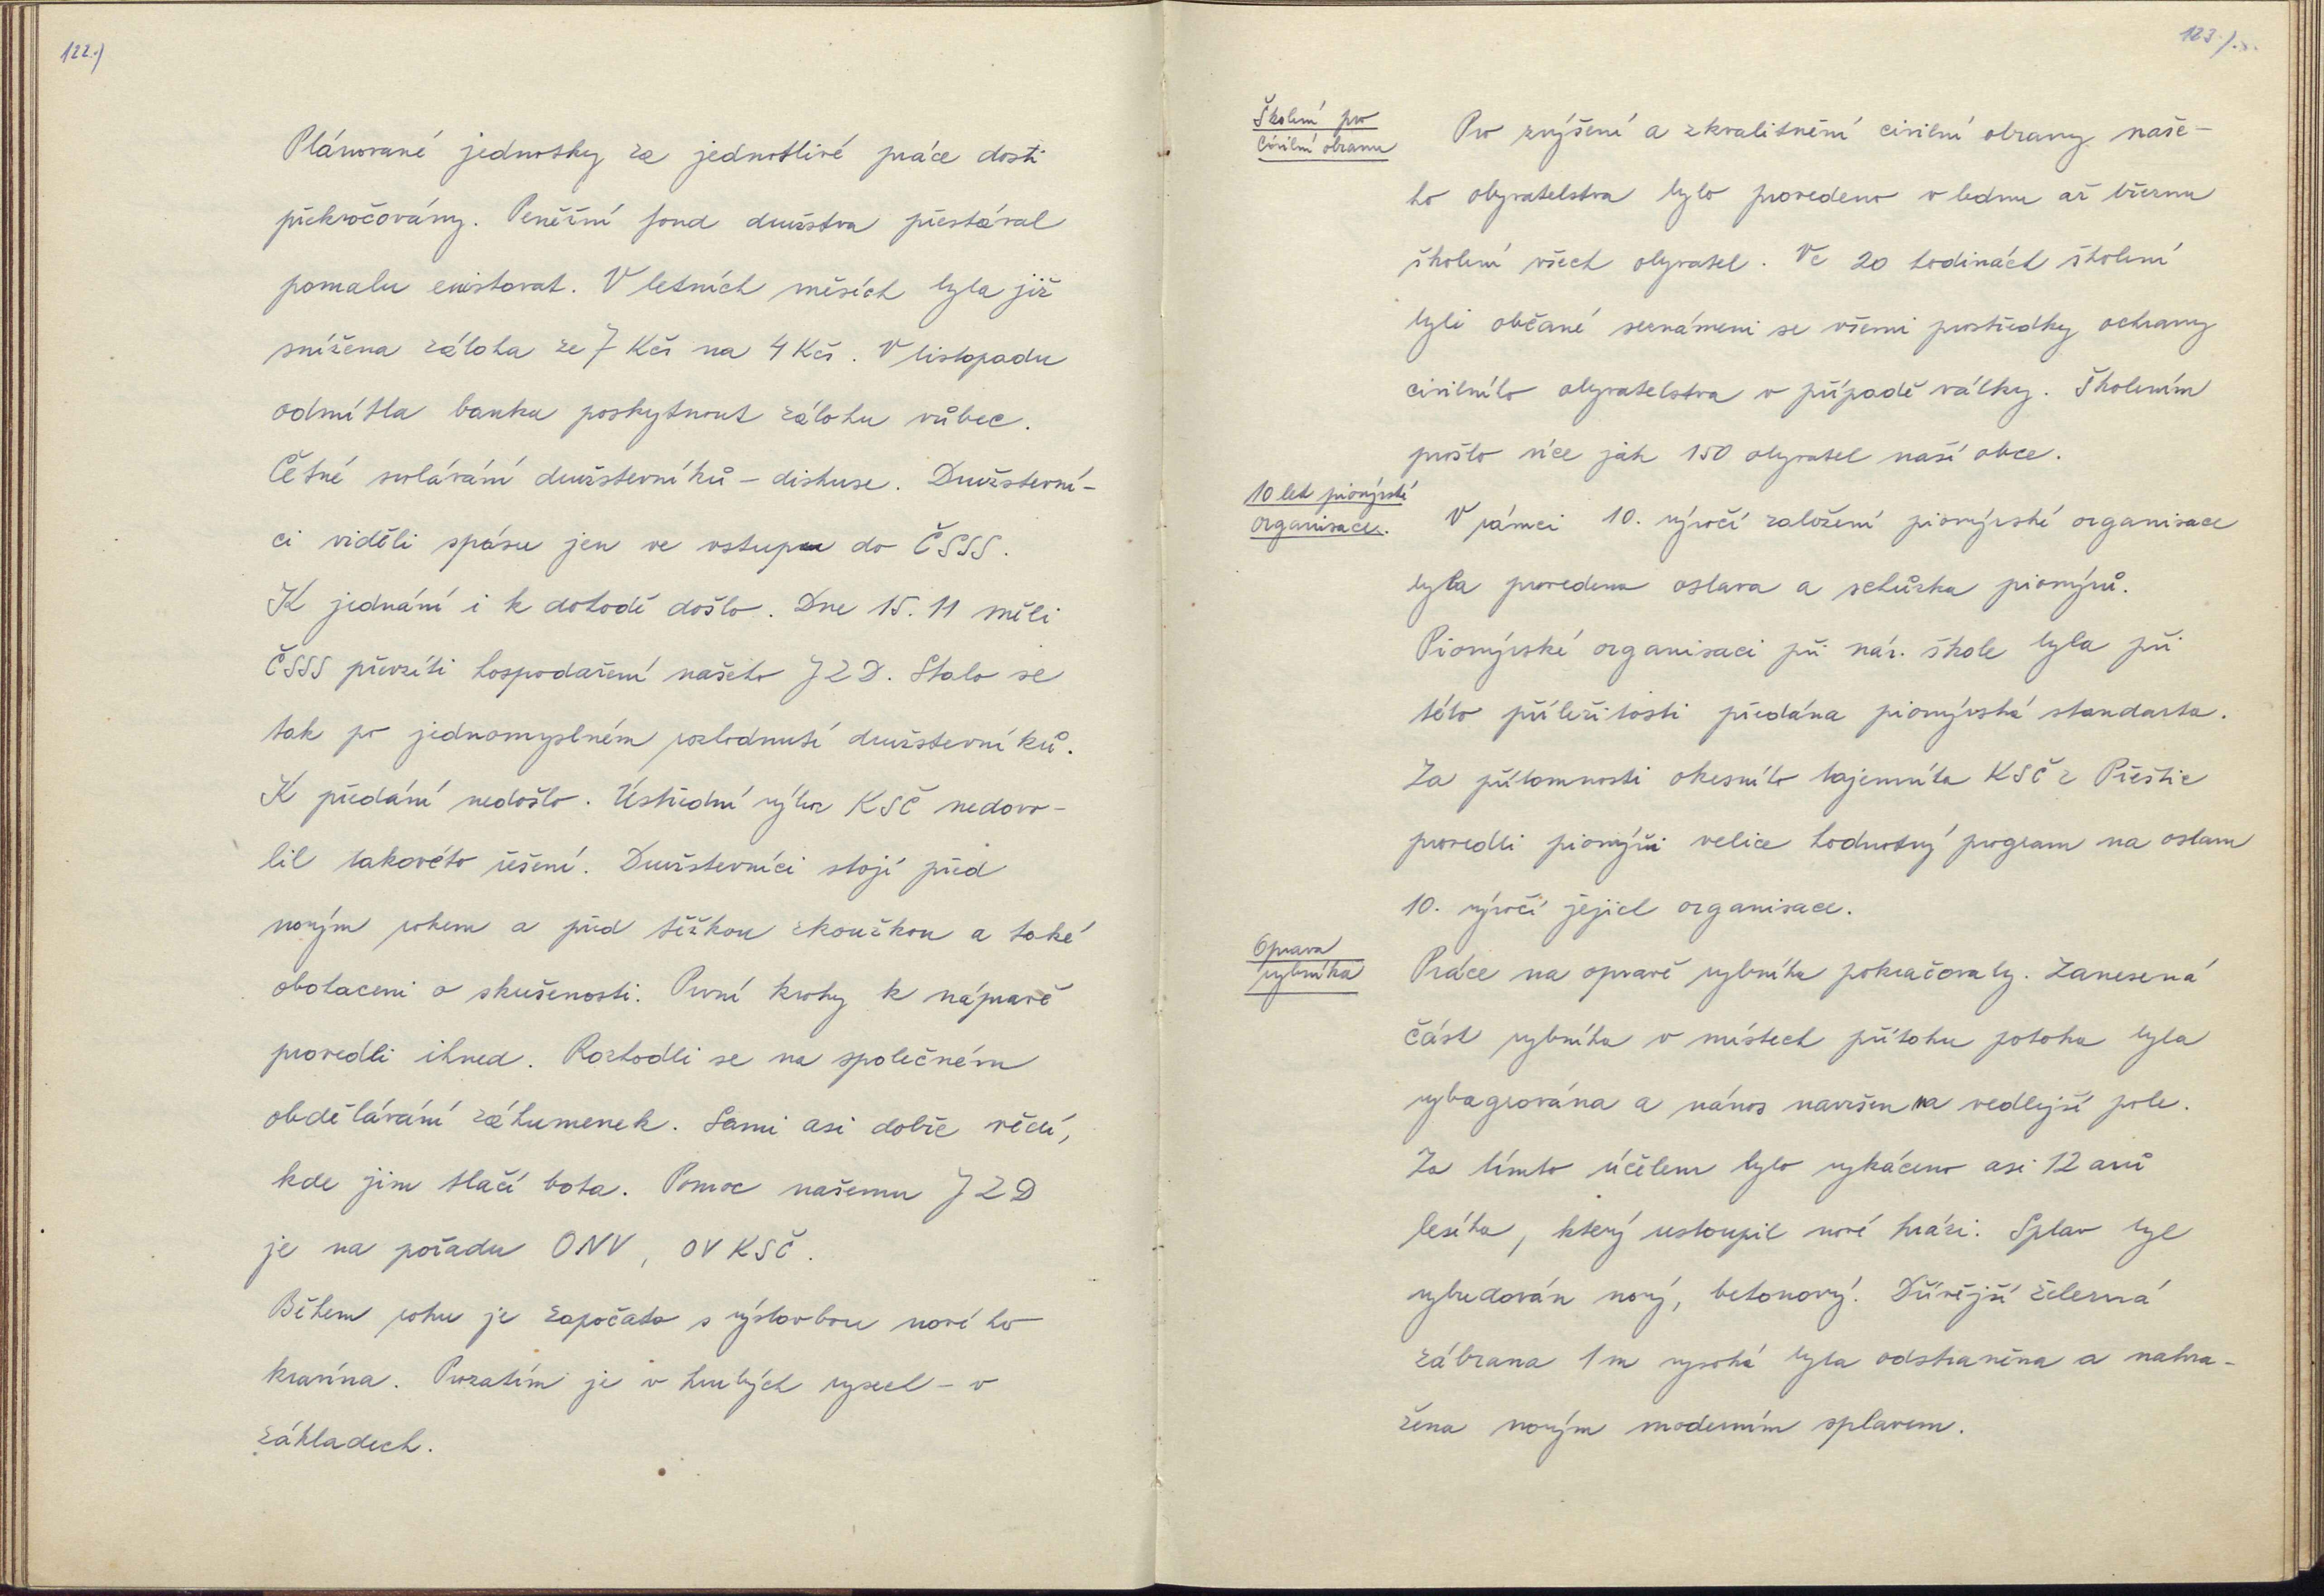 122.)
Plánované jednotky za jednotlivé práce dosti
překročovány. Peněžní fond družstva přestával
pomalu existovat. V letních měsích byla již
snížena záloha ze 7 Kčs na 4 Kčs. V listopadu
odmítla banka poskytnout zálohu vůbec.
Četné svolávání družstevníků – diskuse. Družstevní-
ci viděli spásu jen ve vstupu do ČSSS.
K jednání i k dohodě došlo. Dne 15. 11 měli
ČSSS převzíti hospodaření našeho JZD. Stalo se
tak po jednomyslném rozhodnutí družstevníků.
K předání nedošlo. Ústřední výbor KSČ nedovo-
lil takovéto řešení. Družstevníci stojí před
novým rokem a před těžkou zkouškou a také
obohaceni o skušenosti. První kroky k nápravě
provedli ihned. Rozhodli se na společném
obdělávání záhumenek. Sami asi dobře vědí,
kde jim tlačí bota. Pomoc našemu JZD
je na pořadu ONV, OV KSČ.
Během roku je započato s výstavbou nového
kravína. Prozatím je v hrubých rysech – v
základech.
123.)
Školení pro
Civilní obranu
Pro zvýšení a zkvalitnění civilní obrany naše-
ho obyvatelstva bylo provedeno v lednu až březnu
školení všech obyvatel. Ve 20 hodinách školení
byli občané seznámeni se všemi prostředky ochrany
civilního obyvatelstva v případě války. Školením
prošlo více jak 150 obyvatel naší obce.
10 let pionýrské
organisace.
V rámci 10. výročí založení pionýrské organisace
byla provedena oslava a schůzka pionýrů.
Pionýrské organisaci při nár. škole byla při
této příležitosti předána pionýrská standarta.
Za přítomnosti okesního tajemníka KSČ z Přeštic
provedli pionýři velice hodnotný program na oslavu
10. výročí jejich organisace.
Oprava
rybníka
Práce na opravě rybníka pokračovaly. Zanesená
část rybníka v místech přítoku potoka byla
vybagrována a nános navršen na vedlejší pole.
Za tímto účelem bylo vykáceno asi 12 arů
lesíka, který ustoupil nové hrázi. Splav byl
vybudován nový, betonový. Dřívější železná
zábrana 1 m vysoká byla odstraněna a nahra-
žena novým moderním splavem.